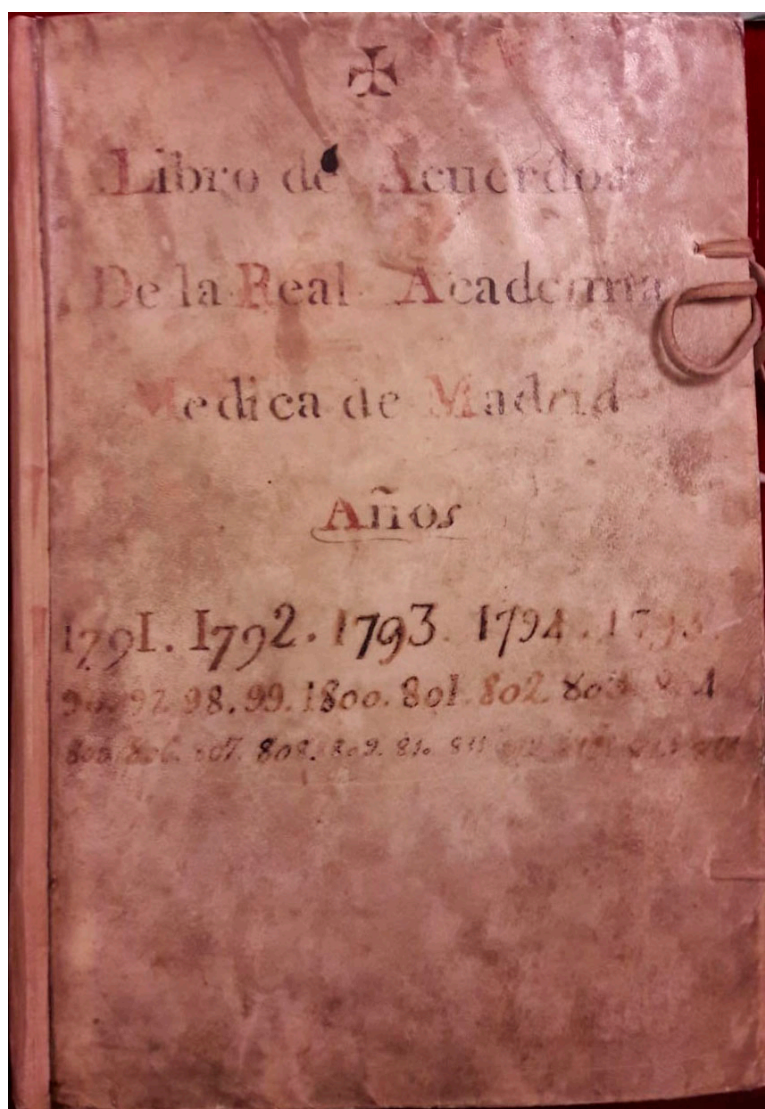 Libro de Acuerdos
De la Real Academia
Medica de Madrid
Años
1791. 1792. 1793. 1794. 1795.
96. 97. 98. 99. 1800. 801. 802. 803. 804
805. 806. 807. 808. 809. 810. 811